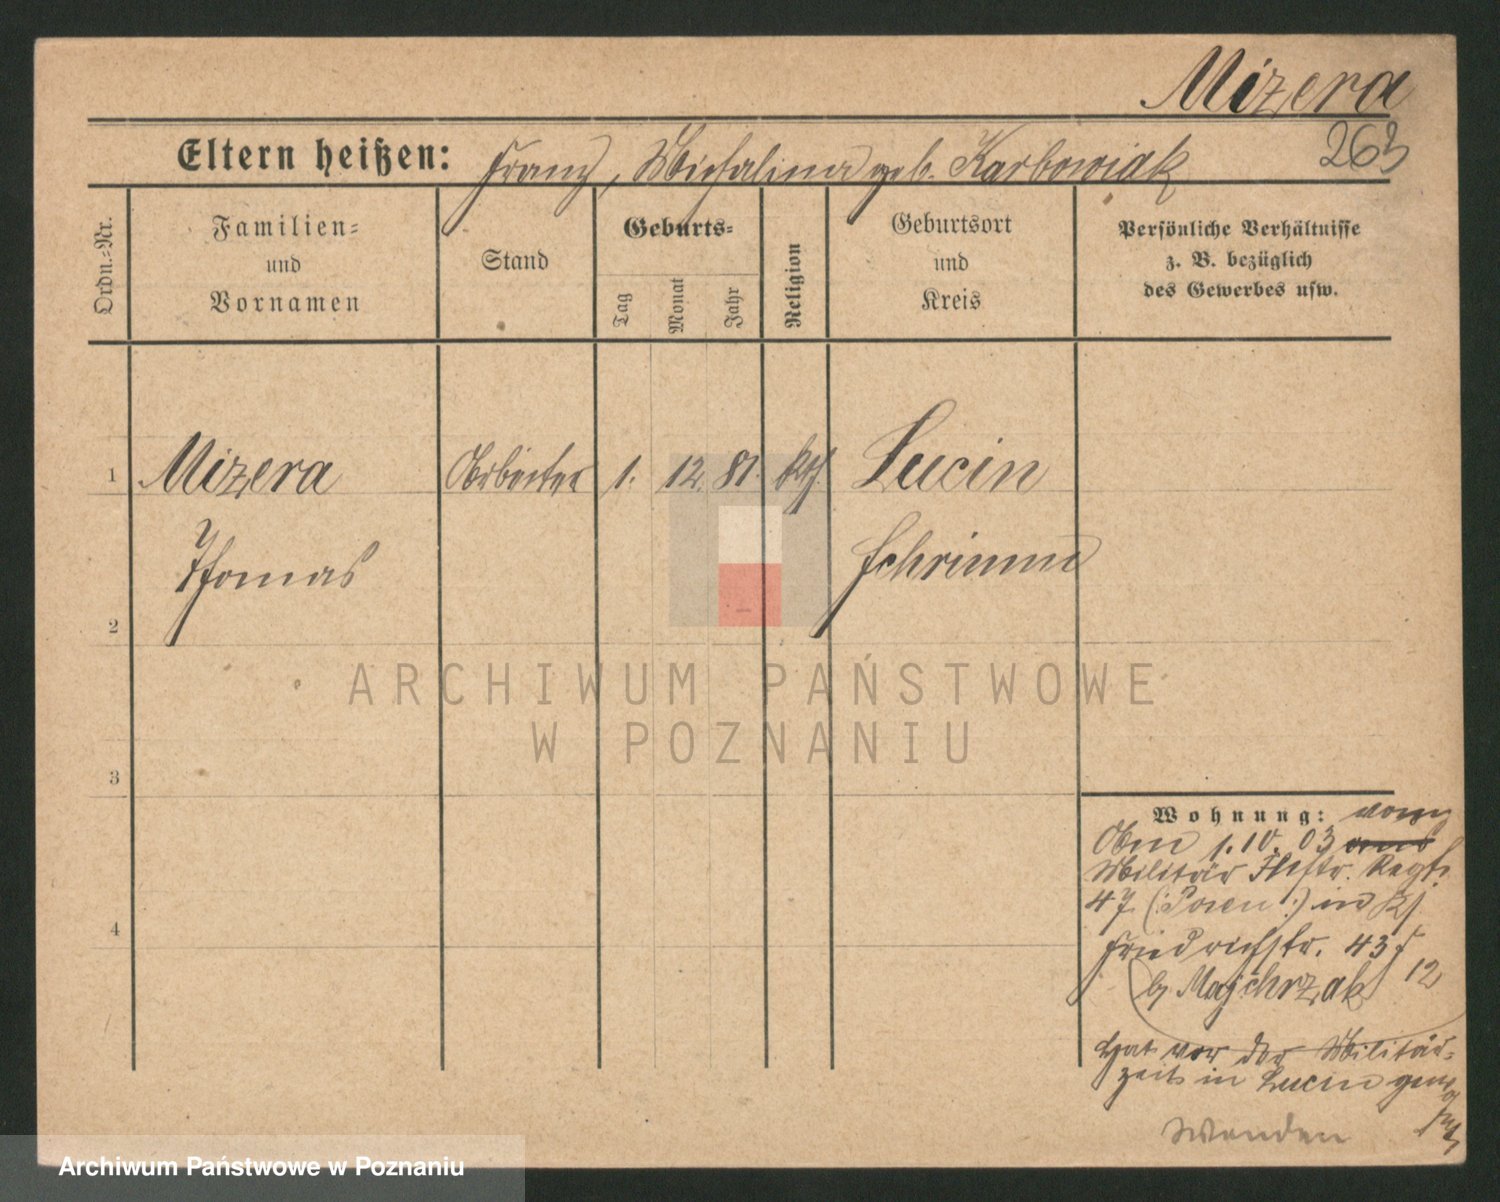 Mizera
263
Eltern heißen: Franz, Michalina geb. Karbowiak
Ordn.-Nr.
Familien-
und
Vornamen
Stand
Geburts-
Tag
Monat
Jahr
Religion
Geburtsort
und
Kreis
Persönliche Verhältnisse
z. B. bezüglich
des Gewerbes usw.
1 Mizera Arbeiter 1. 12. 81. kth. Lucin
Thomas Schrimm
2
3
4
Wohnung: vom
Am 1.10.03
Militär Regt.
47 (:Posen:) in
Friedrichstr. 43
b/ Majchrzak 12
Hat vor der Militär-
zeit in Lucin
Wenden
ARCHIWUM PAŃSTWOWE
W POZNANIU
Archiwum Państwowe w Poznaniu